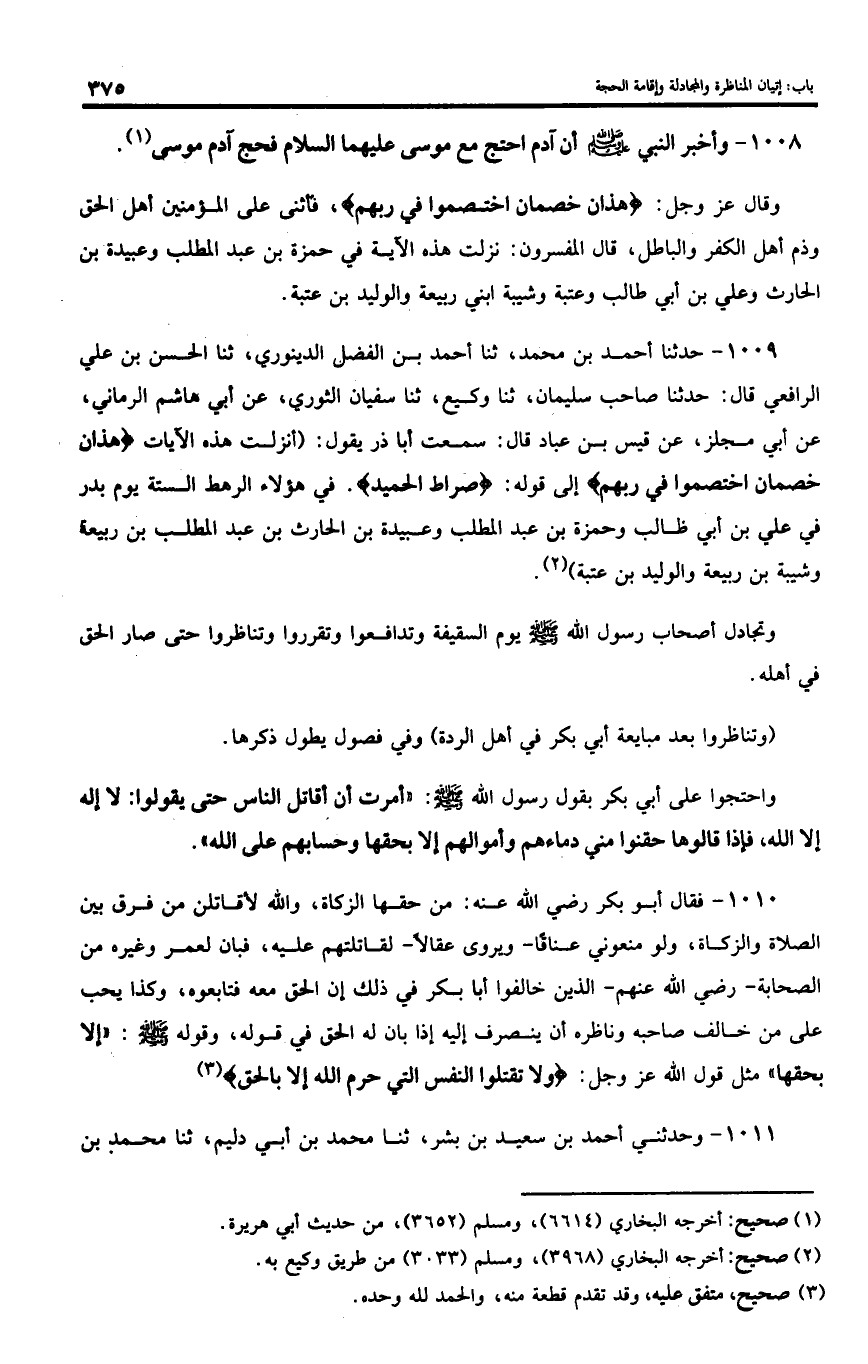 باب: إتيان المناظرة والمجادلة وإقامة الحجة ٣٧٥
١٠٠٨- وأخبر النبي ﷺ أن آدم احتج مع موسى عليهما السلام فحج آدم موسى(١).
وقال عز وجل: ﴿هذان خصمان اختصموا في ربهم﴾، فأثنى على المؤمنين أهل الحق
وذم أهل الكفر والباطل، قال المفسرون: نزلت هذه الآية في حمزة بن عبد المطلب وعبيدة بن
الحارث وعلي بن أبي طالب وعتبة وشيبة ابني ربيعة والوليد بن عتبة.
١٠٠٩- حدثنا أحمد بن محمد، ثنا أحمد بن الفضل الدينوري، ثنا الحسن بن علي
الرافعي قال: حدثنا صاحب سليمان، ثنا وكيع، ثنا سفيان الثوري، عن أبي هاشم الرماني،
عن أبي مجلز، عن قيس بن عباد قال: سمعت أبا ذر يقول: (أنزلت هذه الآيات ﴿هذان
خصمان اختصموا في ربهم﴾ إلى قوله: ﴿صراط الحميد﴾. في هؤلاء الرهط الستة يوم بدر
في علي بن أبي ظالب وحمزة بن عبد المطلب وعبيدة بن الحارث بن عبد المطلب بن ربيعة
وشيبة بن ربيعة والوليد بن عتبة)(٢).
وتجادل أصحاب رسول الله ﷺ يوم السقيفة وتدافعوا وتقرروا وتناظروا حتى صار الحق
في أهله.
(وتناظروا بعد مبايعة أبي بكر في أهل الردة) وفي فصول يطول ذكرها.
واحتجوا على أبي بكر بقول رسول الله ﷺ: «أمرت أن أقاتل الناس حتى يقولوا: لا إله
إلا الله، فإذا قالوها حقنوا مني دماءهم وأموالهم إلا بحقها وحسابهم على الله».
١٠١٠- فقال أبو بكر رضي الله عنه: من حقها الزكاة، والله لأقاتلن من فرق بين
الصلاة والزكاة، ولو منعوني عناقًا- ويروى عقالاً- لقاتلتهم عليه، فبان لعمر وغيره من
الصحابة- رضي الله عنهم- الذين خالفوا أبا بكر في ذلك إن الحق معه فتابعوه، وكذا يحب
على من خالف صاحبه وناظره أن ينصرف إليه إذا بان له الحق في قوله، وقوله ﷺ : «إلا
بحقها» مثل قول الله عز وجل: ﴿ولا تقتلوا النفس التي حرم الله إلا بالحق﴾(٣)
١٠١١- وحدثني أحمد بن سعيد بن بشر، ثنا محمد بن أبي دليم، ثنا محمد بن
(١) صحيح: أخرجه البخاري (٦٦١٤)، ومسلم (٣٦٥٢)، من حديث أبي هريرة.
(٢) صحيح: أخرجه البخاري (٣٩٦٨)، ومسلم (٣٠٣٣) من طريق وكيع به.
(٣) صحيح، متفق عليه، وقد تقدم قطعة منه، والحمد لله وحده.